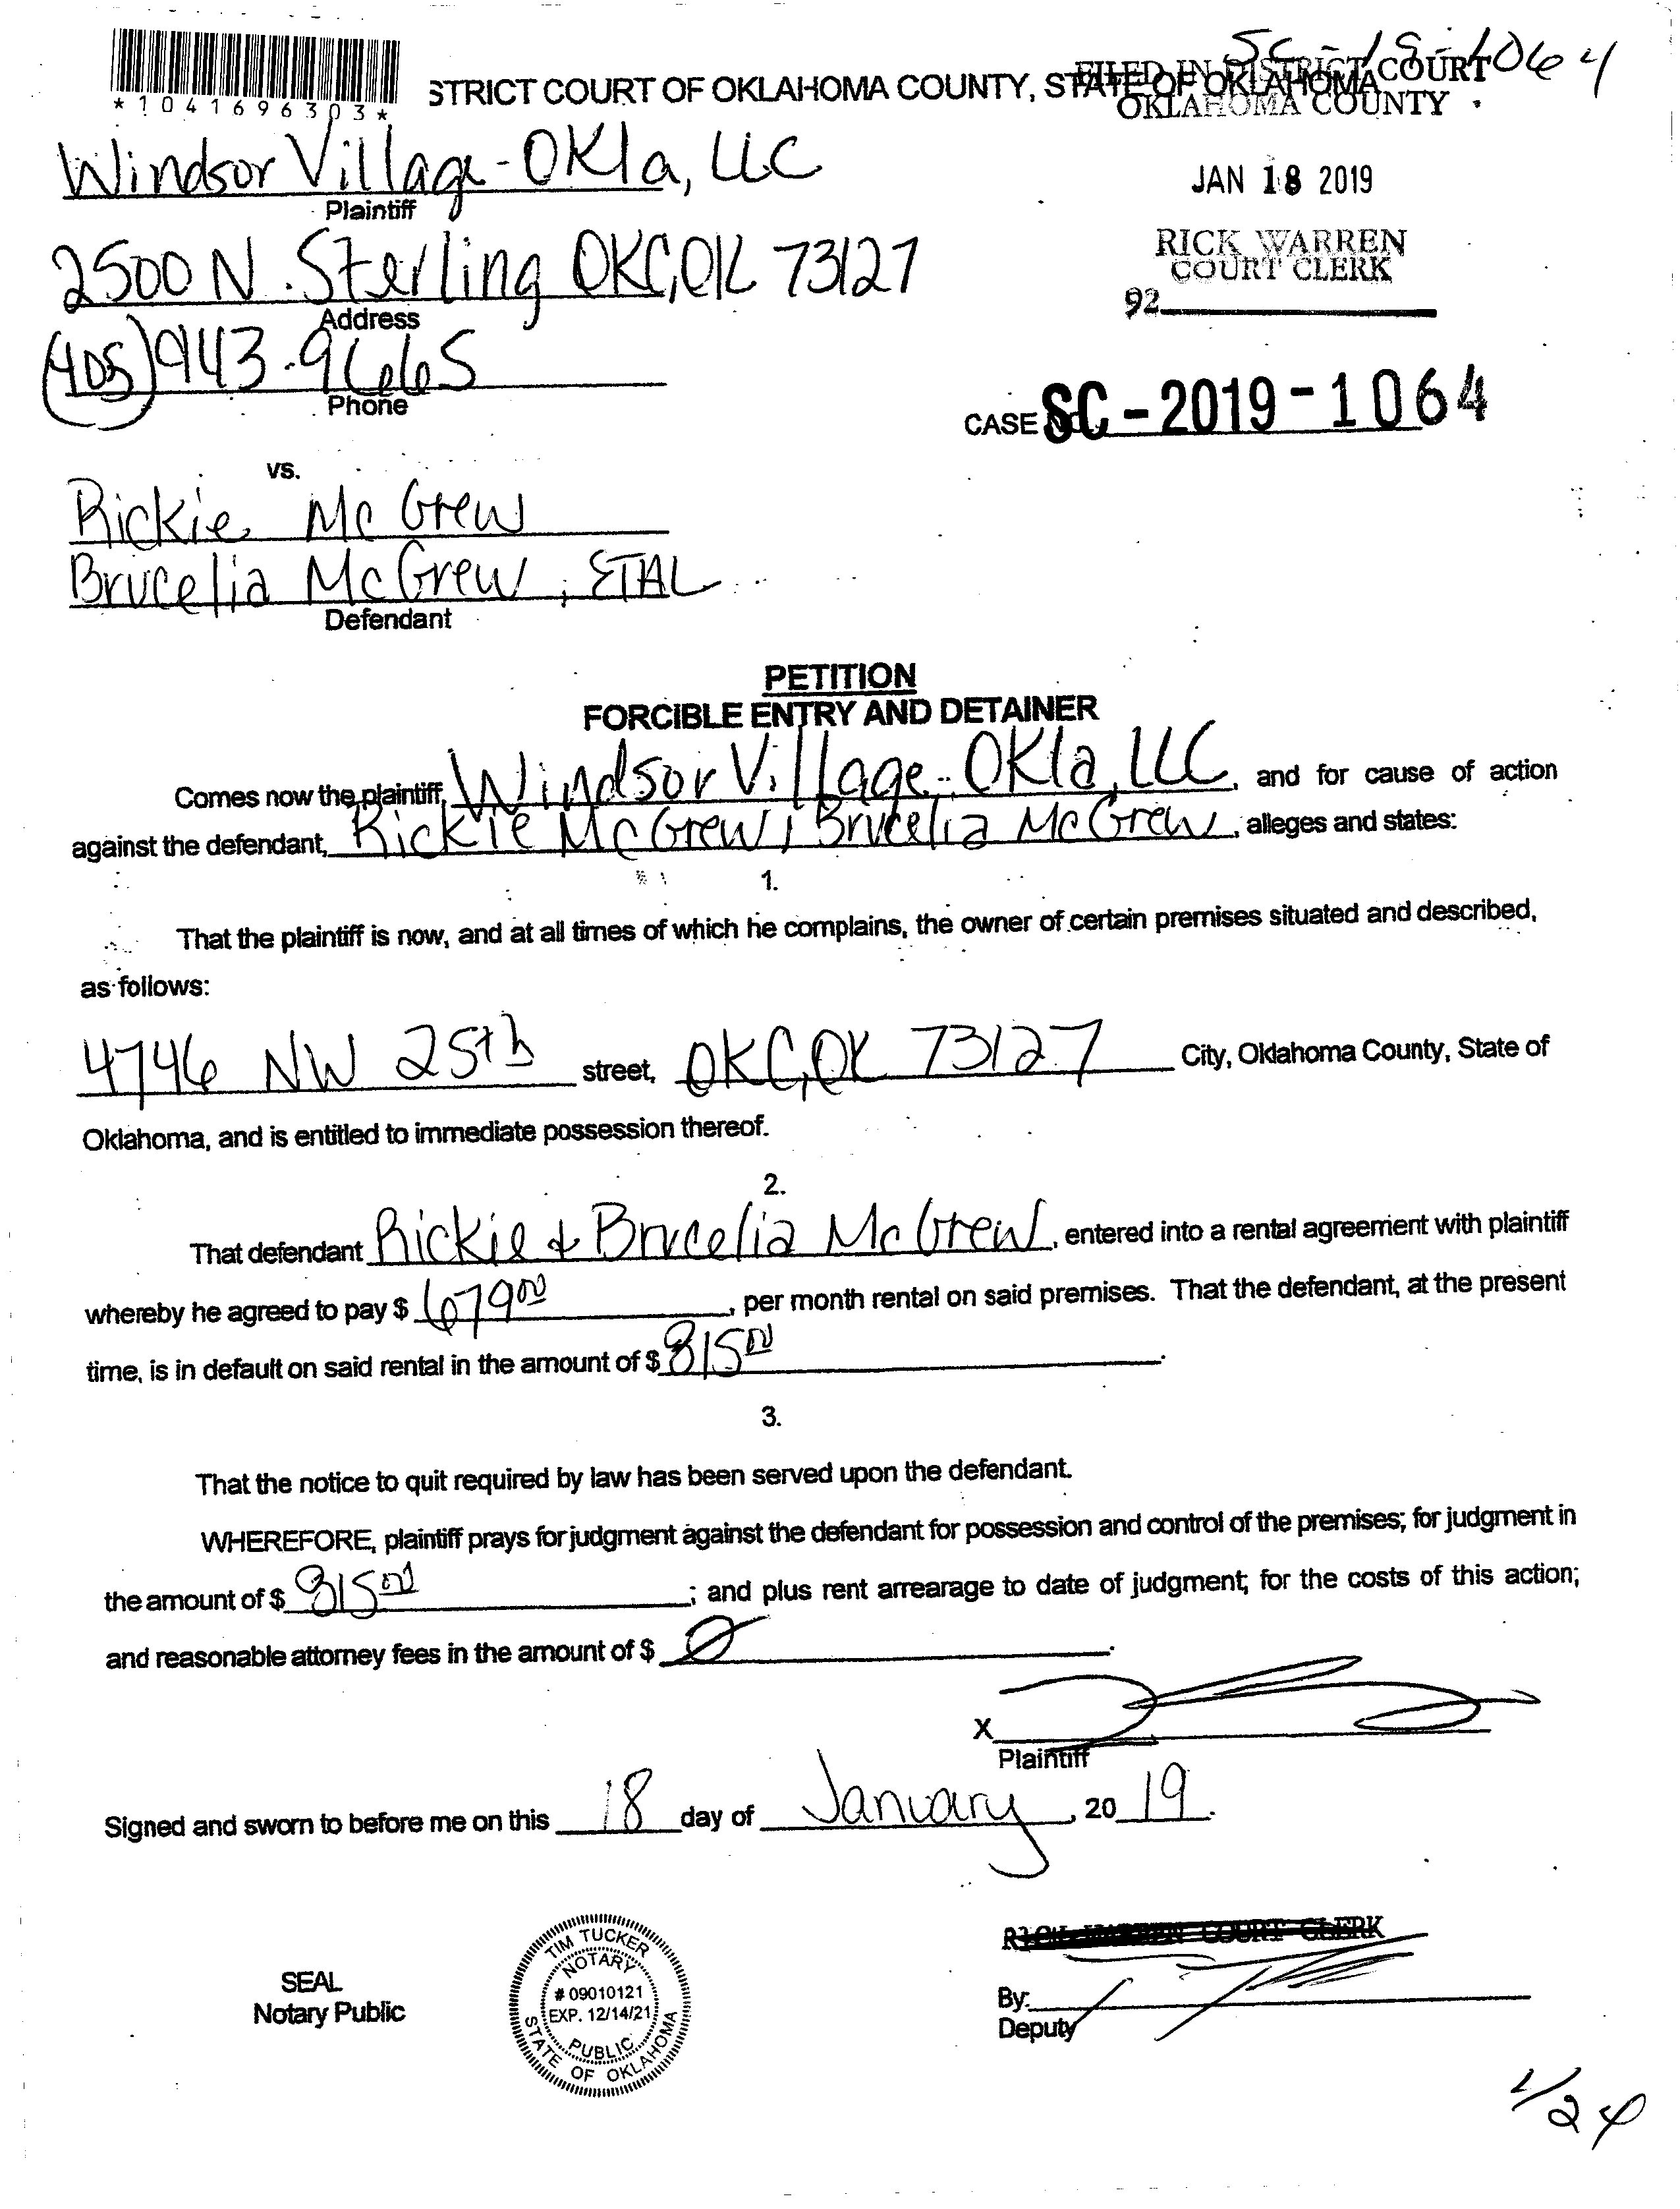 SC-19-1064
*1041696303*
STRICT COURT OF OKLAHOMA COUNTY, STATE OF OKLAHOMA
FILED IN DISTRICT COURT
OKLAHOMA COUNTY
Windsor Village-Okla, LLC
Plaintiff
JAN 18 2019
2500 N. Sterling OKC, OK 73127
Address
RICK WARREN
COURT CLERK
92
(405) 943-9665
Phone
CASE SC-2019-1064
vs.
Rickie McGrew
Brucelia McGrew, ETAL
Defendant
PETITION
FORCIBLE ENTRY AND DETAINER
Comes now the plaintiff, Windsor Village-Okla, LLC, and for cause of action
against the defendant, Rickie McGrew, Brucelia McGrew, alleges and states:
1.
That the plaintiff is now, and at all times of which he complains, the owner of certain premises situated and described,
as follows:
4746 NW 25th street, OKC, OK 73127 City, Oklahoma County, State of
Oklahoma, and is entitled to immediate possession thereof.
2.
That defendant Rickie & Brucelia McGrew, entered into a rental agreement with plaintiff
whereby he agreed to pay $ 679 00, per month rental on said premises. That the defendant, at the present
time, is in default on said rental in the amount of $ 815 00.
3.
That the notice to quit required by law has been served upon the defendant.
WHEREFORE, plaintiff prays for judgment against the defendant for possession and control of the premises; for judgment in
the amount of $ 815 00; and plus rent arrearage to date of judgment; for the costs of this action;
and reasonable attorney fees in the amount of $ 0.
X
Plaintiff
Signed and sworn to before me on this 18 day of January, 2019.
SEAL
Notary Public
TIM TUCKER
NOTARY
# 09010121
EXP. 12/14/21
PUBLIC
STATE OF OKLAHOMA
RICK WARREN COURT CLERK
By:
Deputy
1/24